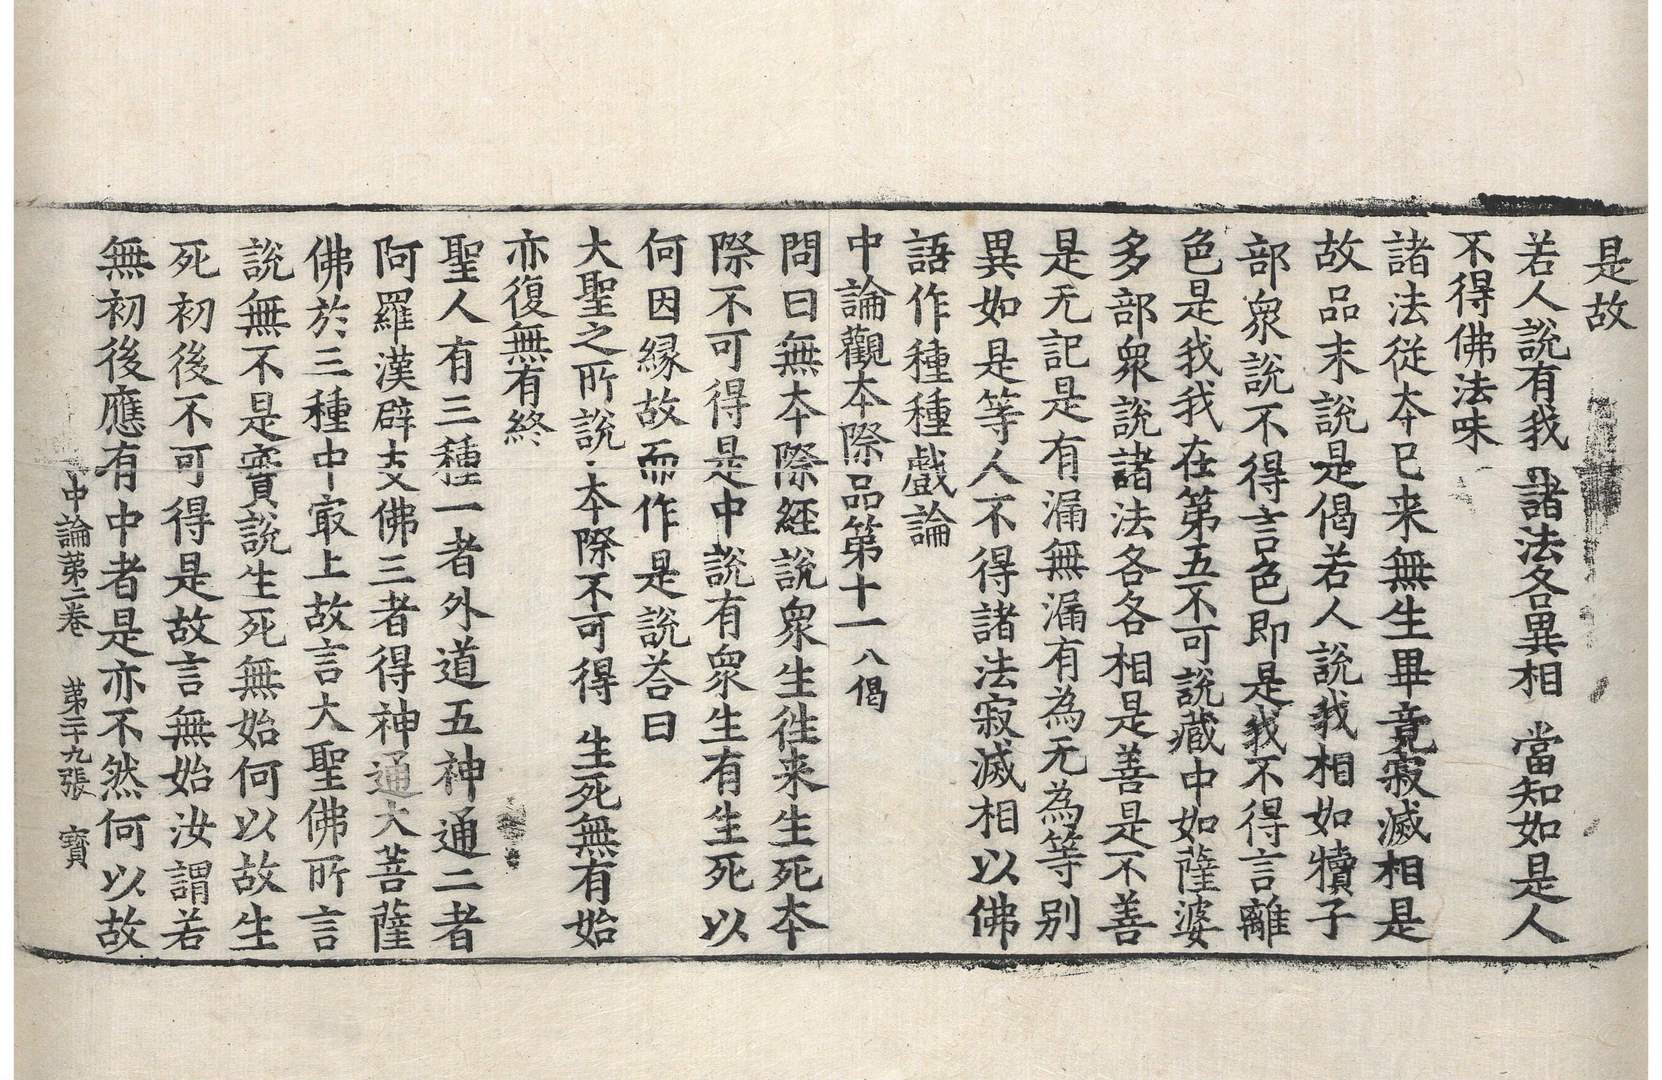 是故
若人說有我 諸法各異相 當知如是人
不得佛法味
諸法從夲已来無生畢竟寂滅相是
故品末說是偈若人說我相如犢子
部衆說不得言色即是我不得言離
色是我我在第五不可說藏中如薩婆
多部衆說諸法各各相是善是不善
是无記是有漏無漏有為无為等别
異如是等人不得諸法寂滅相以佛
語作種種戲論
中論觀夲際品第十一 八偈
問曰無夲際經說衆生徃来生死夲
際不可得是中說有衆生有生死以
何因緣故而作是說荅曰
大聖之所說 夲際不可得 生死無有始
亦復無有終
聖人有三種一者外道五神通二者
阿羅漢辟支佛三者得神通大菩薩
佛於三種中㝡上故言大聖佛所言
說無不是實說生死無始何以故生
死初後不可得是故言無始汝謂若
無初後應有中者是亦不然何以故
中論第二卷 第二十九張 寶